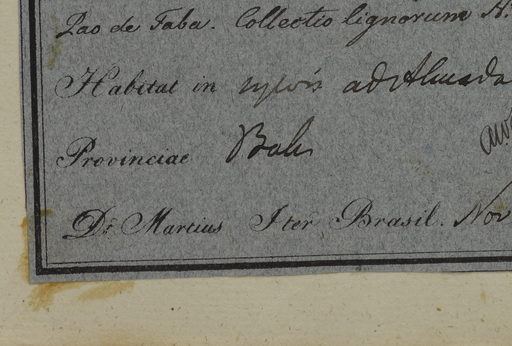 Pao de Faba. Collectio lignorum
Habitat in sylvis ad Almada
Provinciae Bah
Dr Martius Iter Brasil. Nov